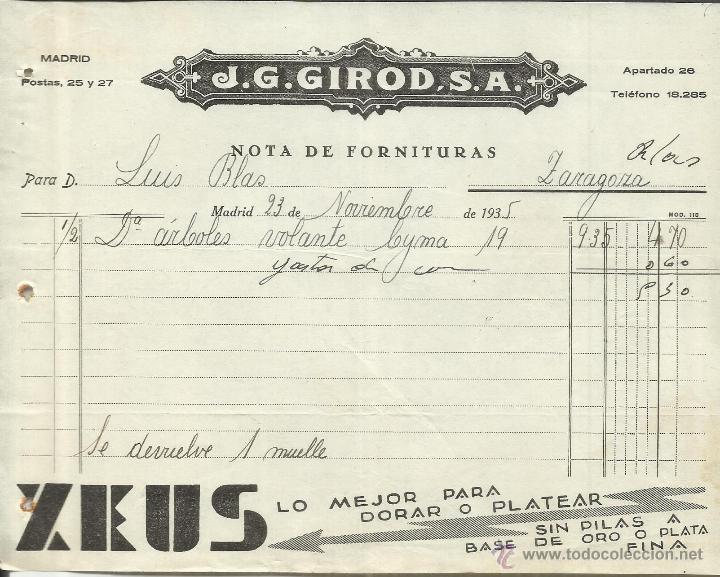 MADRID
Postas, 25 y 27
J. G. GIROD, S. A.
Apartado 26
Teléfono 18.285
NOTA DE FORNITURAS
Para D. Luis Blas Zaragoza
Madrid 23 de Novrembre de 1935
MOD. 110
1/2 Dª árboles volante Cyma 19 9 35 4 70
gastos de 0 60
5 30
Se devuelve 1 muelle
ZEUS
LO MEJOR PARA
DORAR O PLATEAR
SIN PILAS A
BASE DE ORO O PLATA
FINA
© www.todocoleccion.net